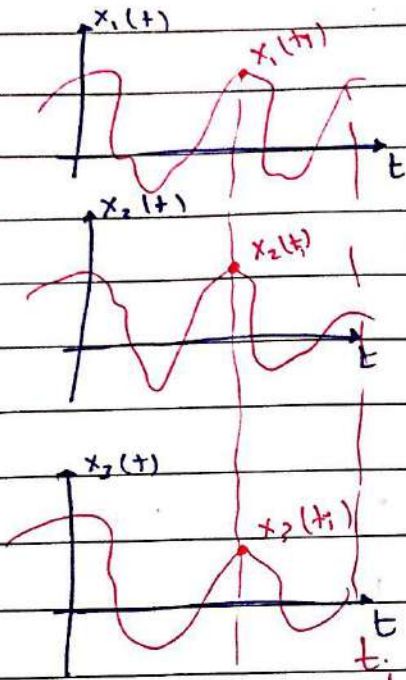 x₁(t)
x₁(t₁)
t
x₂(t)
x₂(t₁)
t
x₃(t)
x₃(t₁)
t